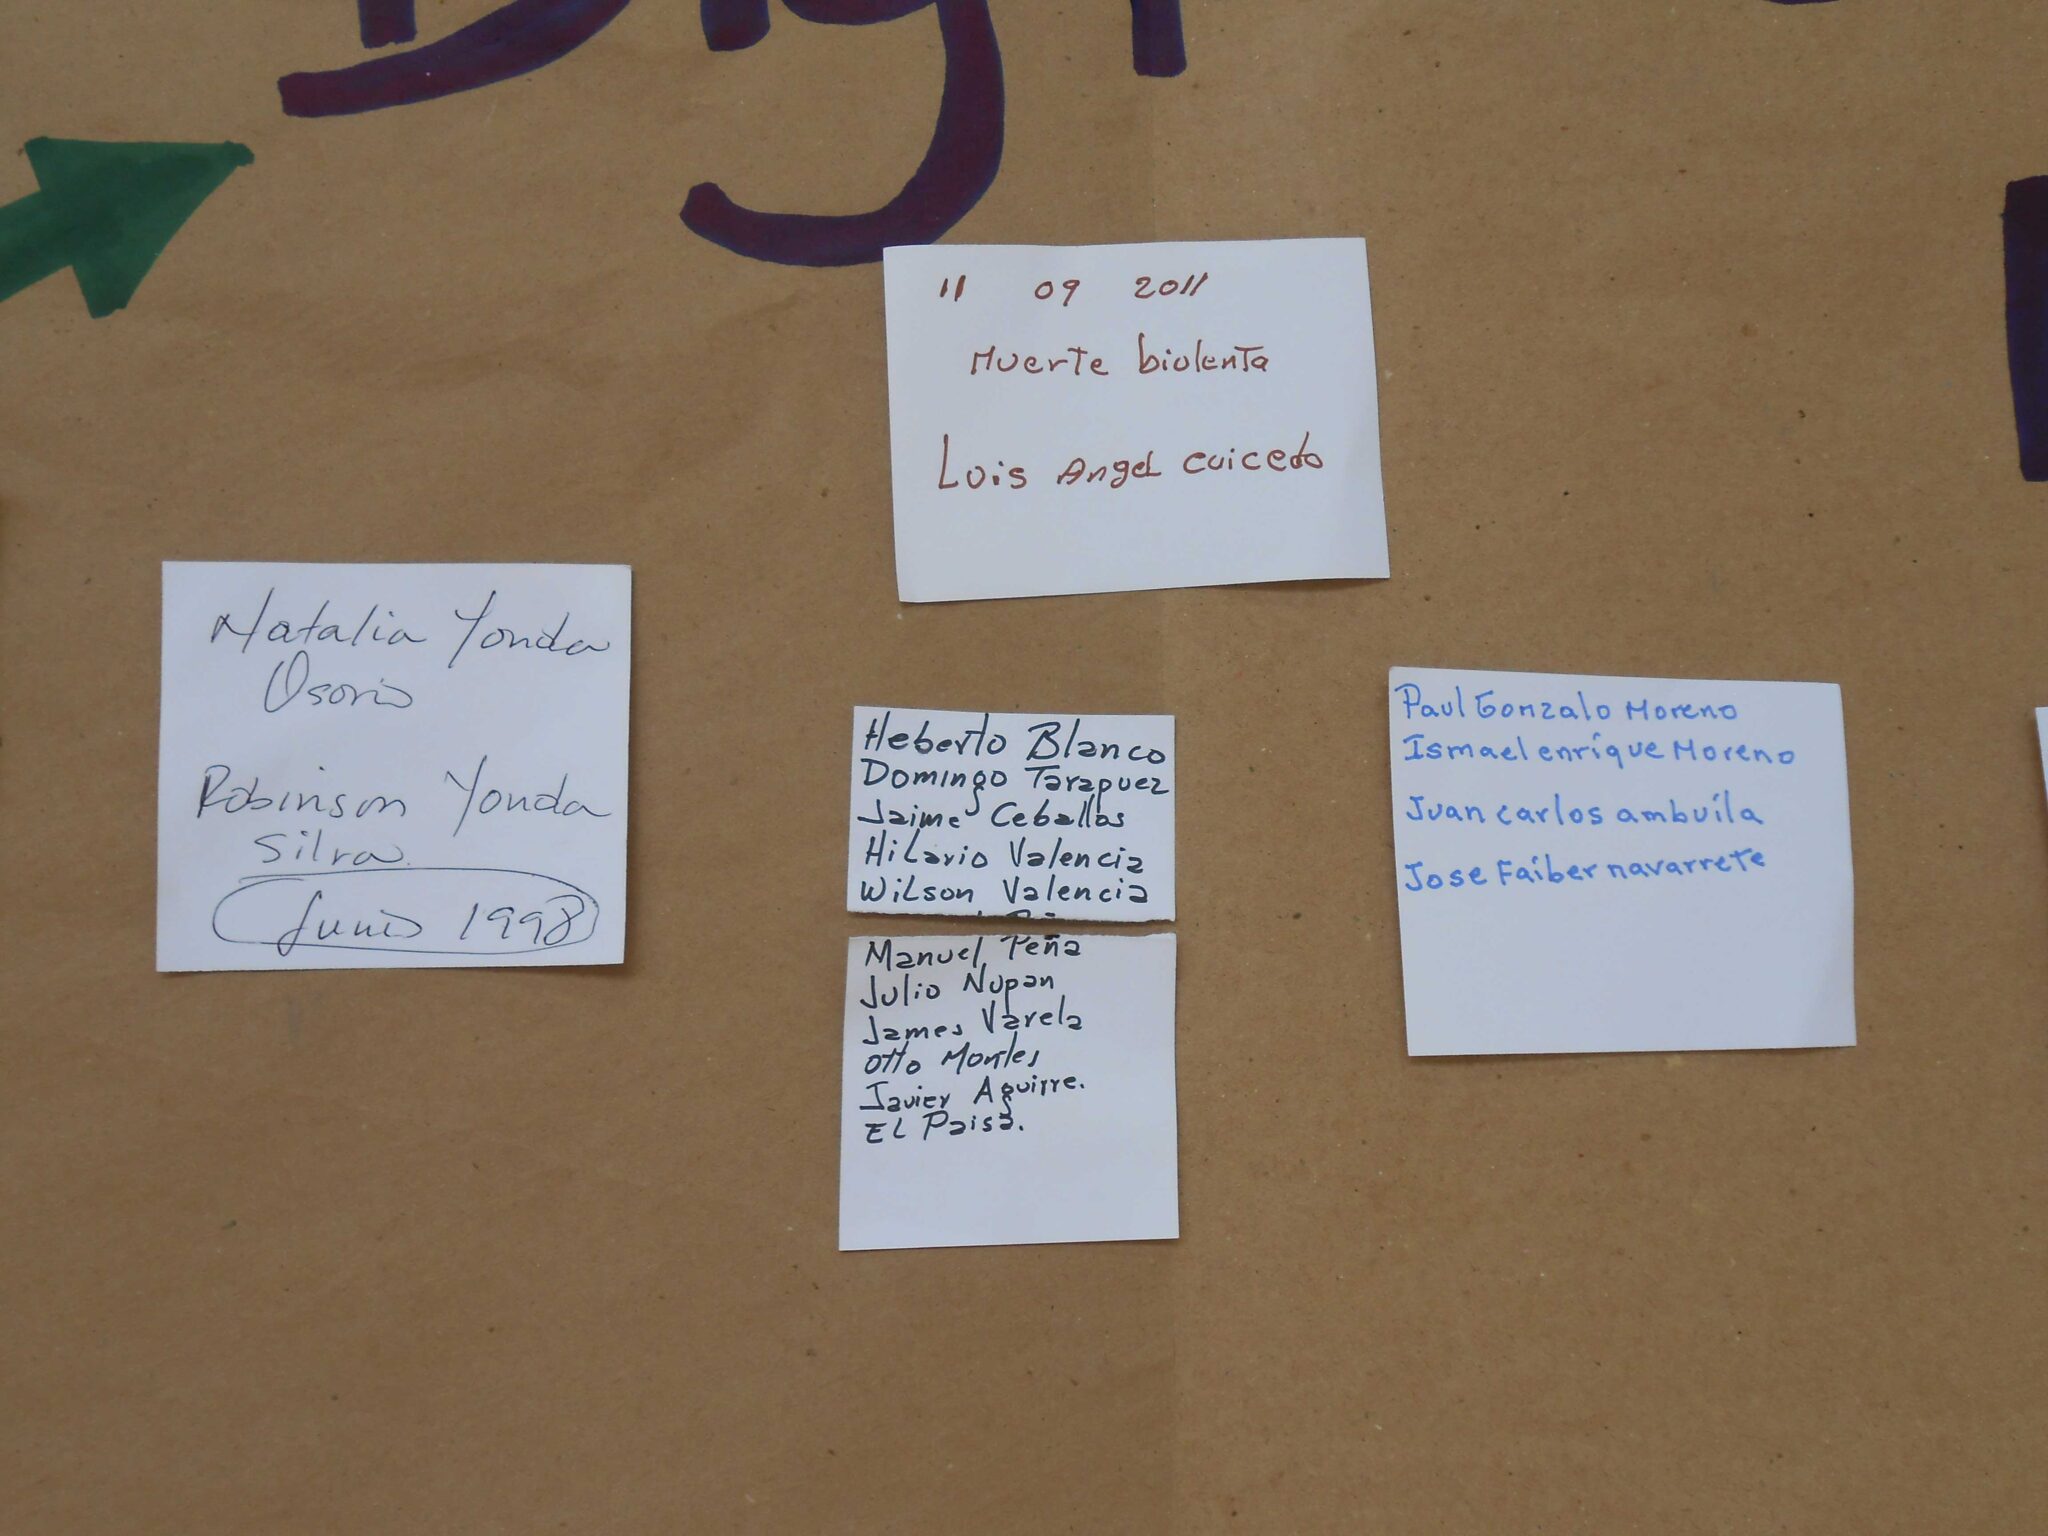 11 09 2011
Muerte biolenta
Luis Angel Caicedo
Natalia Yonda
Osorio
Robinson Yonda
Silva
Junio 1998
Heberto Blanco
Domingo Tarapuez
Jaime Ceballos
Hilario Valencia
Wilson Valencia
Manuel Peña
Julio Nupan
James Varela
Otto Montes
Javier Aguirre.
EL Paisa.
Paul Gonzalo Moreno
Ismael enríque Moreno
Juan carlos ambuíla
Jose Faíber navarrete